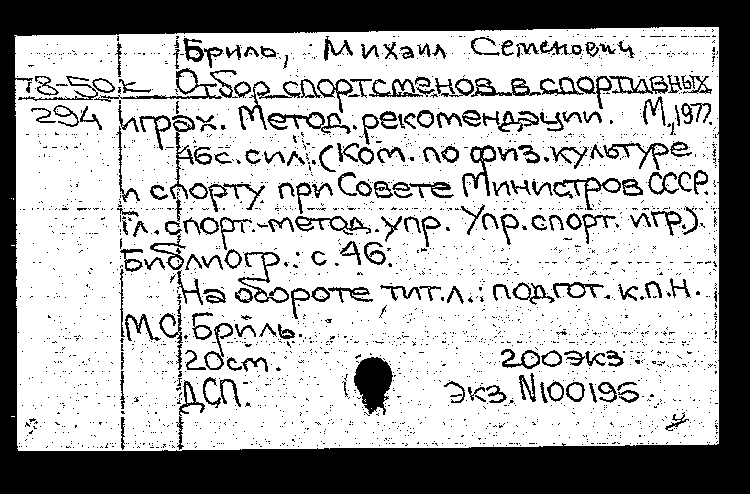 Бриль, Михаил Семенович
Т8-50к Отбор спортсменов в спортивных
294 играх. Метод. рекомендации. М., 1977.
46с. с ил. (Ком. по физ. культуре
и спорту при Совете Министров СССР.
Гл. спорт.-метод. упр. Упр. спорт. игр.).
Библиогр.: с. 46.
На обороте тит. л.: подгот. к.п.н.
М.С. Бриль.
20 см. 200 экз.
ДСП. Экз. N100196.